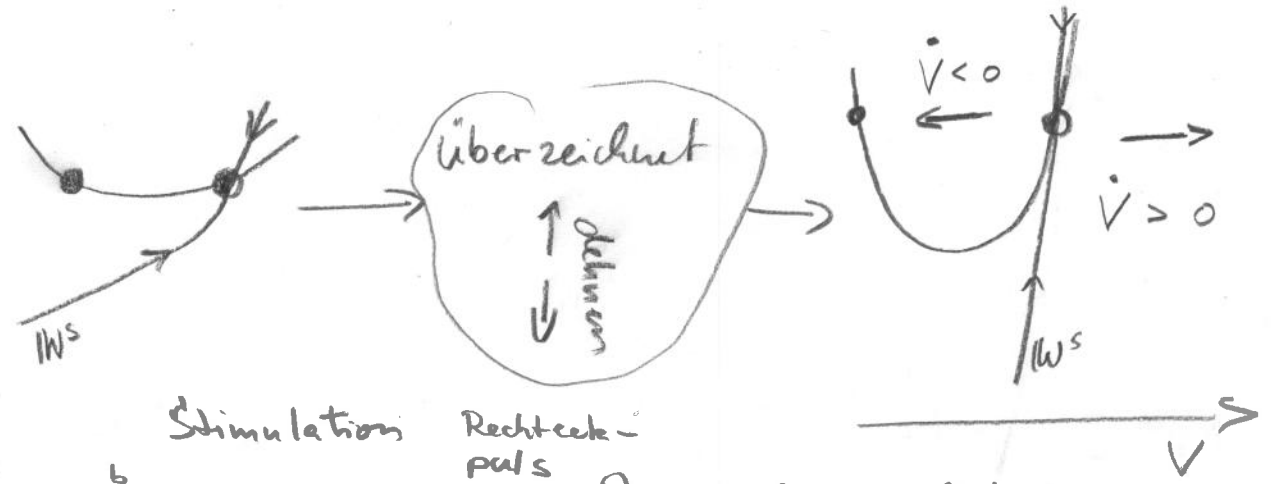 V̇ < 0
überzeichnet
dehnen
V̇ > 0
𝕎ˢ
𝕎ˢ
Stimulation Rechteck-
puls
V
b